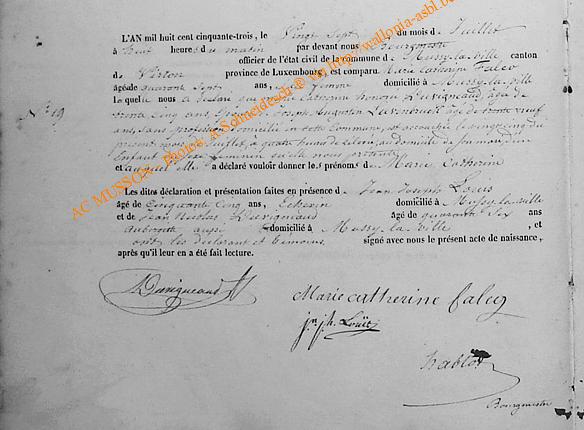 L'AN mil huit cent cinquante-trois, le Vingt Sept du mois de Juillet
à huit heures du matin par devant nous Bourgmestre
officier de l'état civil de la commune de Mussy la Ville, canton
de Virton province de Luxembourg est comparu Marie Catherine Falcy
âgée de quarante Sept ans Femme domicilié à Mussy la Ville
lequel nous a déclaré que Catherine honorine Duvigneaud, âgée de
N° 19
trente Cinq ans, Joseph Augustin âgé de trente neuf
ans, sans profession domicilié en cette Commune, est accouchée le vingt cinq du
présent mois de Juillet, à quatre heures de au domicile de son mari, d'un
Enfant de sexe féminin qu'elle nous présente
et auquel elle a déclaré vouloir donner les prénoms de Marie Catherine
Les dites déclaration et présentation faites en présence de Jean Joseph Louis
âgé de Cinquante Cinq ans, Echevin domicilié à Mussy la Ville
et de Jean Nicolas Duvigneaud âgé de quarante Six ans
Aubergiste aussi domicilié à Mussy la Ville, et
ont les déclarant et témoins signé avec nous le présent acte de naissance,
après qu'il leur en a été fait lecture.
Duvigneaud
Marie catherine falcy
jn. jh. Louis
hablot
Bourgmestre
AC MUSSON - Photos A Schneidesch @ via http://wallonia-asbl.be